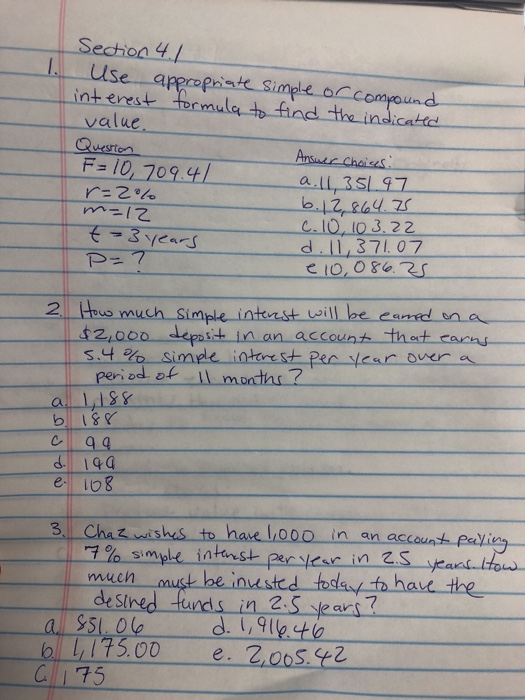 Section 4.1
1. Use appropriate simple or compound
interest formula to find the indicated
value.
Question
F=10,709.41
r=2%
m=12
t=3 years
P=?
Answer choices:
a. 11,351.97
b. 12,864.75
c. 10,103.22
d. 11,371.07
e 10,086.25
2. How much simple interest will be earned on a
$2,000 deposit in an account that earns
5.4% simple interest per year over a
period of 11 months?
a. 1,188
b. 188
c 99
d. 199
e. 108
3. Chaz wishes to have 1,000 in an account paying
7% simple interest per year in 2.5 years. How
much must be invested today to have the
desired funds in 2.5 years?
a. 851.06
b. 1,175.00
c. 175
d. 1,916.46
e. 2,005.42